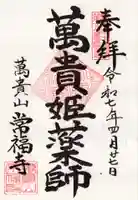 奉拝
令和七年四月廿七日
萬貴姫薬師
萬貴山
常福寺